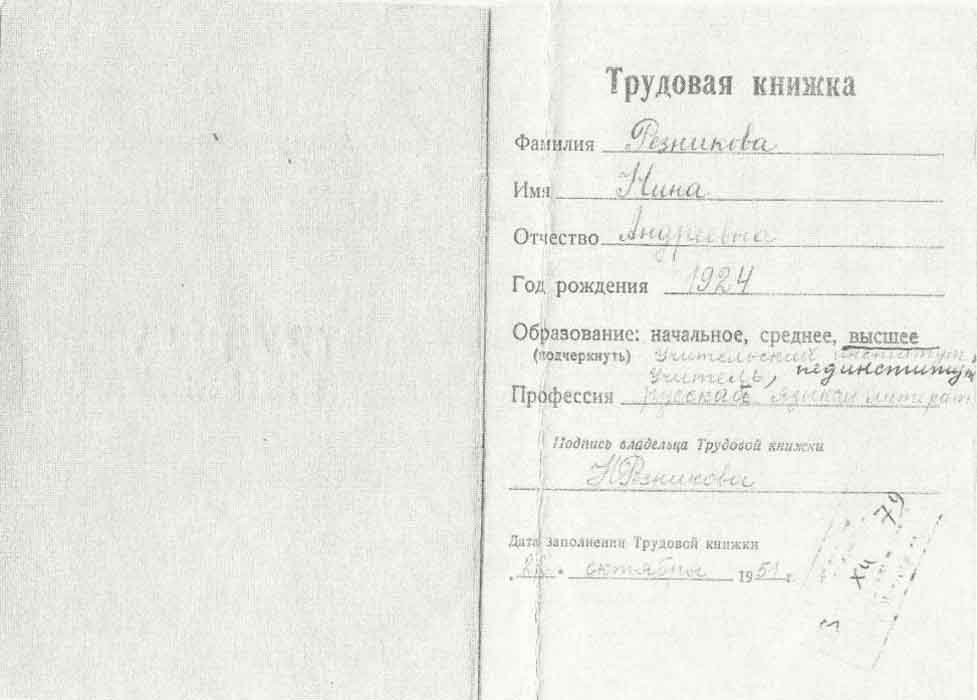 Трудовая книжка
Фамилия Резникова
Имя Нина
Отчество Андреевна
Год рождения 1924
Образование: начальное, среднее, высшее
(подчеркнуть) учительский институт,
учитель, пединститут
Профессия русского языка и литерат
Подпись владельца Трудовой книжки
НРезникова
Дата заполнения Трудовой книжки
"22" октября 1951 г.
79